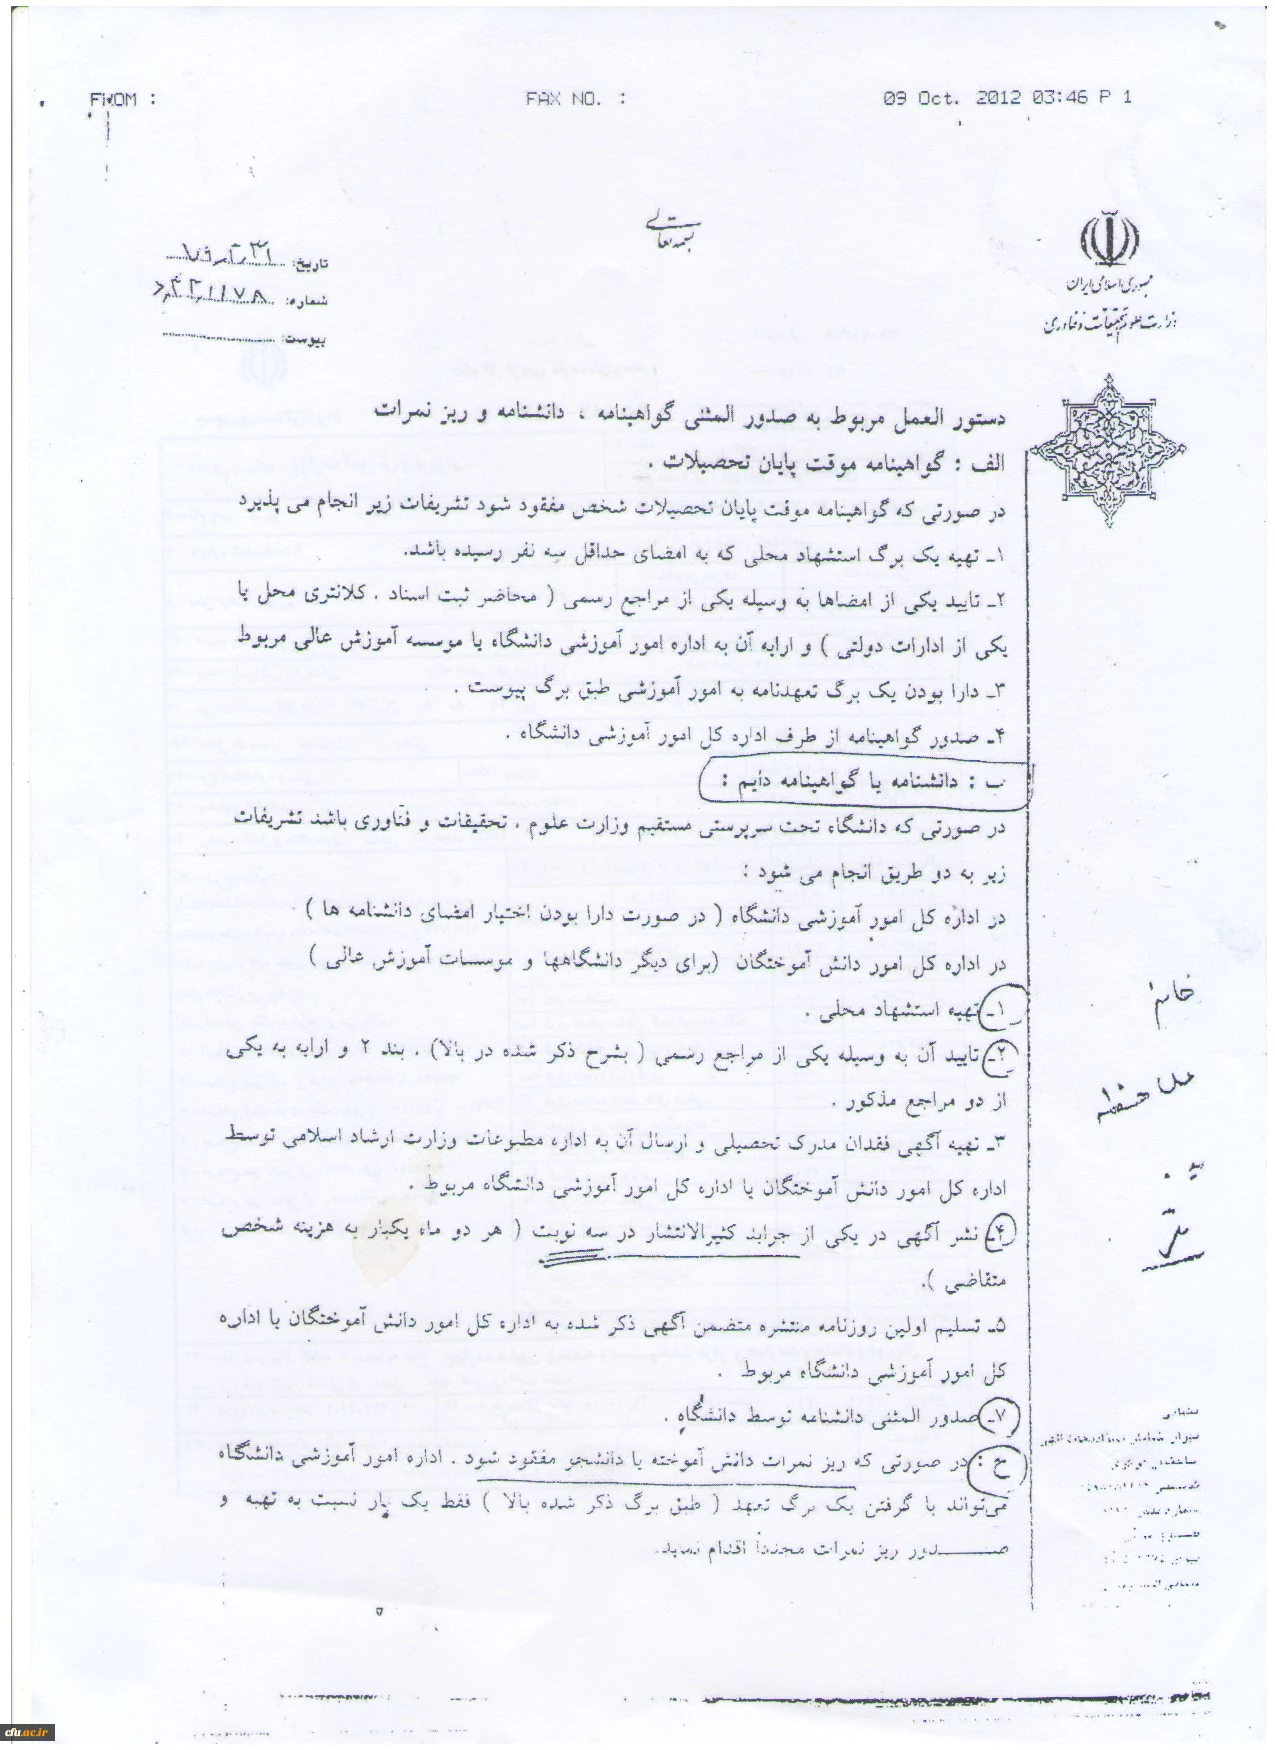 FROM :
FAX NO. :
09 Oct. 2012 03:46 P 1
بسمه تعالی
جمهوری اسلامی ایران
وزارت علوم تحقیقات و فناوری
تاریخ:
شماره:
پیوست:
دستور العمل مربوط به صدور المثنی گواهینامه ، دانشنامه و ریز نمرات
الف : گواهینامه موقت پایان تحصیلات .
در صورتی که گواهینامه موقت پایان تحصیلات شخص مفقود شود تشریفات زیر انجام می پذیرد
۱ـ تهیه یک برگ استشهاد محلی که به امضای حداقل سه نفر رسیده باشد.
۲ـ تایید یکی از امضاها به وسیله یکی از مراجع رسمی ( محاضر ثبت اسناد ، کلانتری محل یا
یکی از ادارات دولتی ) و ارایه آن به اداره امور آموزشی دانشگاه یا موسسه آموزش عالی مربوط
۳ـ دارا بودن یک برگ تعهدنامه به امور آموزشی طبق برگ پیوست .
۴ـ صدور گواهینامه از طرف اداره کل امور آموزشی دانشگاه .
ب : دانشنامه یا گواهینامه دایم :
در صورتی که دانشگاه تحت سرپرستی مستقیم وزارت علوم ، تحقیقات و فناوری باشد تشریفات
زیر به دو طریق انجام می شود :
در اداره کل امور آموزشی دانشگاه ( در صورت دارا بودن اختیار امضای دانشنامه ها )
در اداره کل امور دانش آموختگان (برای دیگر دانشگاهها و موسسات آموزش عالی )
۱ـ تهیه استشهاد محلی .
۲ـ تایید آن به وسیله یکی از مراجع رسمی ( بشرح ذکر شده در بالا) ، بند ۲ و ارایه به یکی
از دو مراجع مذکور .
۳ـ تهیه آگهی فقدان مدرک تحصیلی و ارسال آن به اداره مطبوعات وزارت ارشاد اسلامی توسط
اداره کل امور دانش آموختگان یا اداره کل امور آموزشی دانشگاه مربوط .
۴ـ نشر آگهی در یکی از جراید کثیرالانتشار در سه نوبت ( هر دو ماه یکبار به هزینه شخص
متقاضی ).
۵ـ تسلیم اولین روزنامه منتشره متضمن آگهی ذکر شده به اداره کل امور دانش آموختگان یا اداره
کل امور آموزشی دانشگاه مربوط .
۷ـ صدور المثنی دانشنامه توسط دانشگاه .
ج : در صورتی که ریز نمرات دانش آموخته یا دانشجو مفقود شود ، اداره امور آموزشی دانشگاه
می‌تواند با گرفتن یک برگ تعهد ( طبق برگ ذکر شده بالا ) فقط یک بار نسبت به تهیه و
صـــدور ریز نمرات مجدداً اقدام نماید.
خانم
cfu.ac.ir